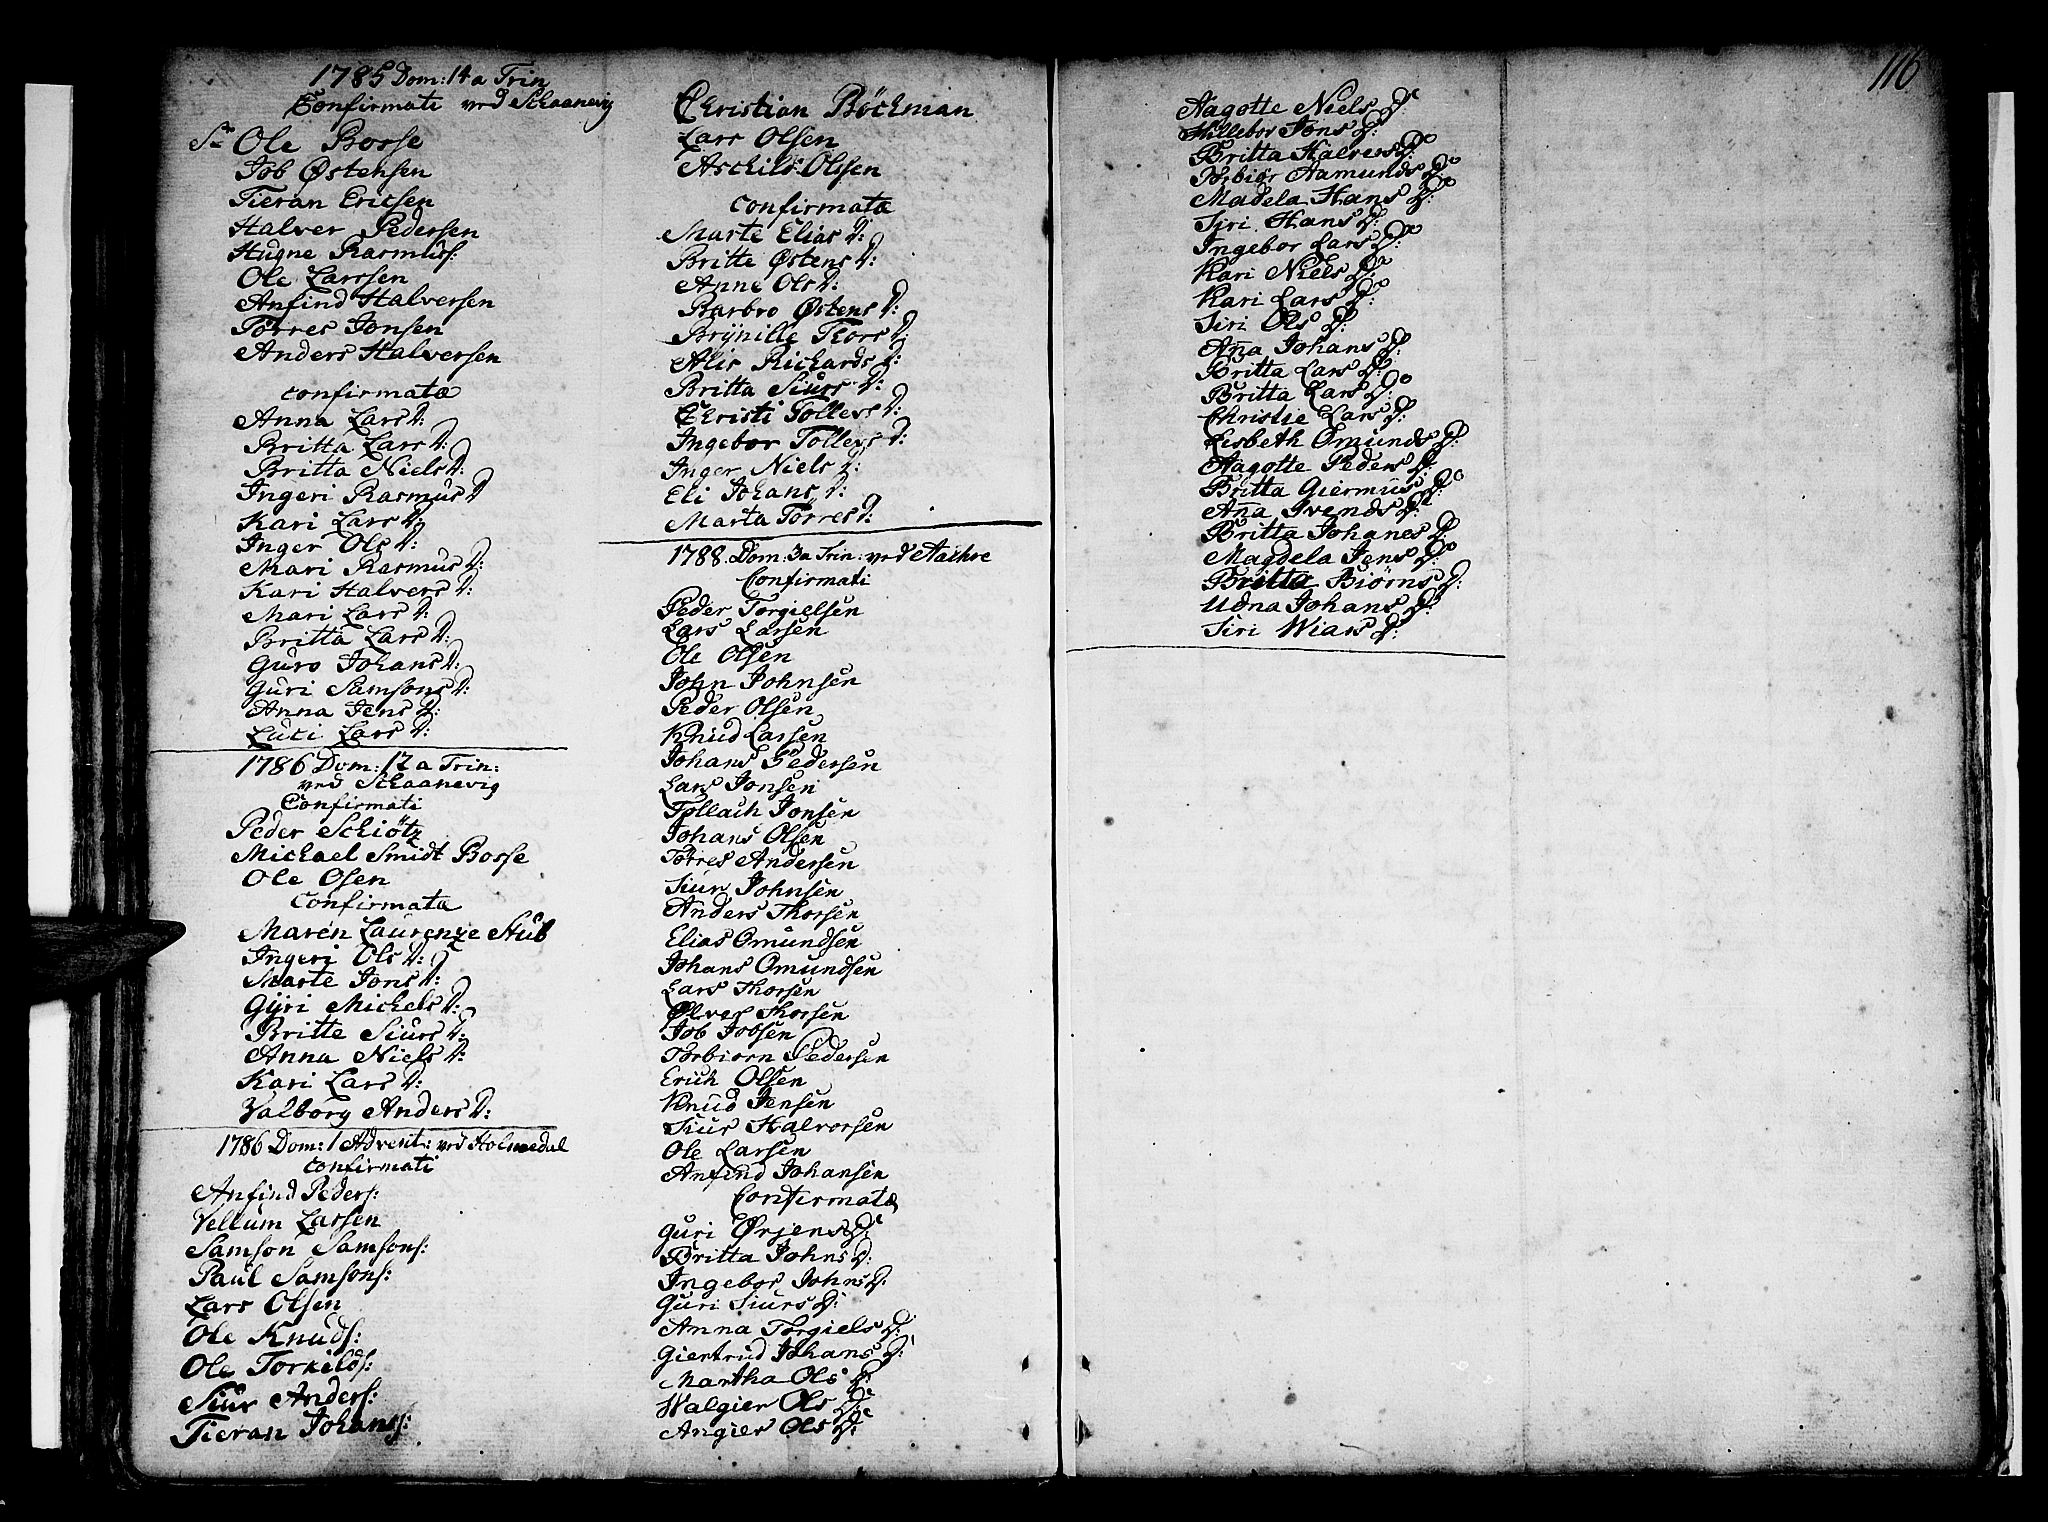 1785 Dom: 14 a Trin
Confirmati ved Schaanevig
Sr Ole Bosse
Job Østensen
Tieran Ericsen
Halver Pedersen
Hugne Rasmus:
Ole Larssen
Anfind Halversen
Törres Jonsen
Anders Halversen
confirmatæ
Anna Lars D:
Britta Lars D:
Britta Niels D:
Ingeri Rasmus D
Kari Lars D:
Inger Ols D:
Mari Rasmus D:
Kari Halvers D:
Mari Lars D:
Britta Lars D:
Guro Johans D:
Guri Samsons D:
Anna Jens D:
Luci Lars D:
1786 Dom: 12 a Trin:
ved Schaanevig
Confirmati
Peder Schiötz
Michael Smidt Bosse
Ole Olsen
Confirmatæ
Maren Laurenze Stub
Ingeri Ols D:
Marte Jons D:
Gÿri Michels D:
Britte Siurs D:
Anna Niels D:
Kari Lars D:
Valborg Anders D:
1786 Dom: 1 Advent: ved Holmedal
confirmati
Anfind Peders:
Vellum Larsen
Samson Samsons:
Paul Samsons:
Lars Olsen
Ole Knuds:
Ole Torkilds:
Siur Anders:
Tieran Johans:
Christian Böckman
Lars Olsen
Aschild Olssen
confirmatæ
Marte Elias D:
Britte Østens D:
Anne Ols D:
Barbro Østens D:
Brÿnille Thors D:
Alis Richards D:
Britta Siurs D:
Christi Tollevs D:
Ingebor Tollevs D:
Inger Niels D:
Eli Johans D:
Marta Törres D:
1788. Dom: 3 a Trin: ved Aachre
Confirmati
Peder Torgielsen
Lars Larsen
Ole Olsen
John Johnsen
Peder Olsen
Knud Larsen
Johans Pedersen
Lars Jonsen
Tollach Jonsen
Johans Olsen
Törres Andersen
Siur Johnsen
Anders Thorsen
Elias Omundsen
Johans Omundsen
Lars Thorsen
Ølver Thorsen
Job Jobsen
Torbiorn Pedersen
Erich Olsen
Knud Jensen
Siur Halvorsen
Ole Larsen
Anfind Johansen
Confirmatæ
Guri Ørjens D:
Britta Johns D:
Ingebor Johns D:
Guri Siurs D:
Anna Torgiels D:
Giertrud Johans D:
Martha Ols D:
Walgier Ols D:
Angier Ols D:
116
Aagotte Niels D:
Hillebor Jons D:
Britta Halvers D:
Torbiör Aamunds D:
Madela Hans D:
Siri Hans D:
Ingebor Lars D:
Kari Niels D:
Kari Lars D:
Siri Ols D:
Aña Johans D:
Britta Lars D:
Britta Lars D:
Christie Lars D:
Lisbeth Omunds D:
Aagotte Peders D:
Britta Giermus D:
Aña Ivends D:
Britta Johanes D:
Magdela Jens D:
Britta Biörns D:
Udna Johans D:
Siri Wiars D: